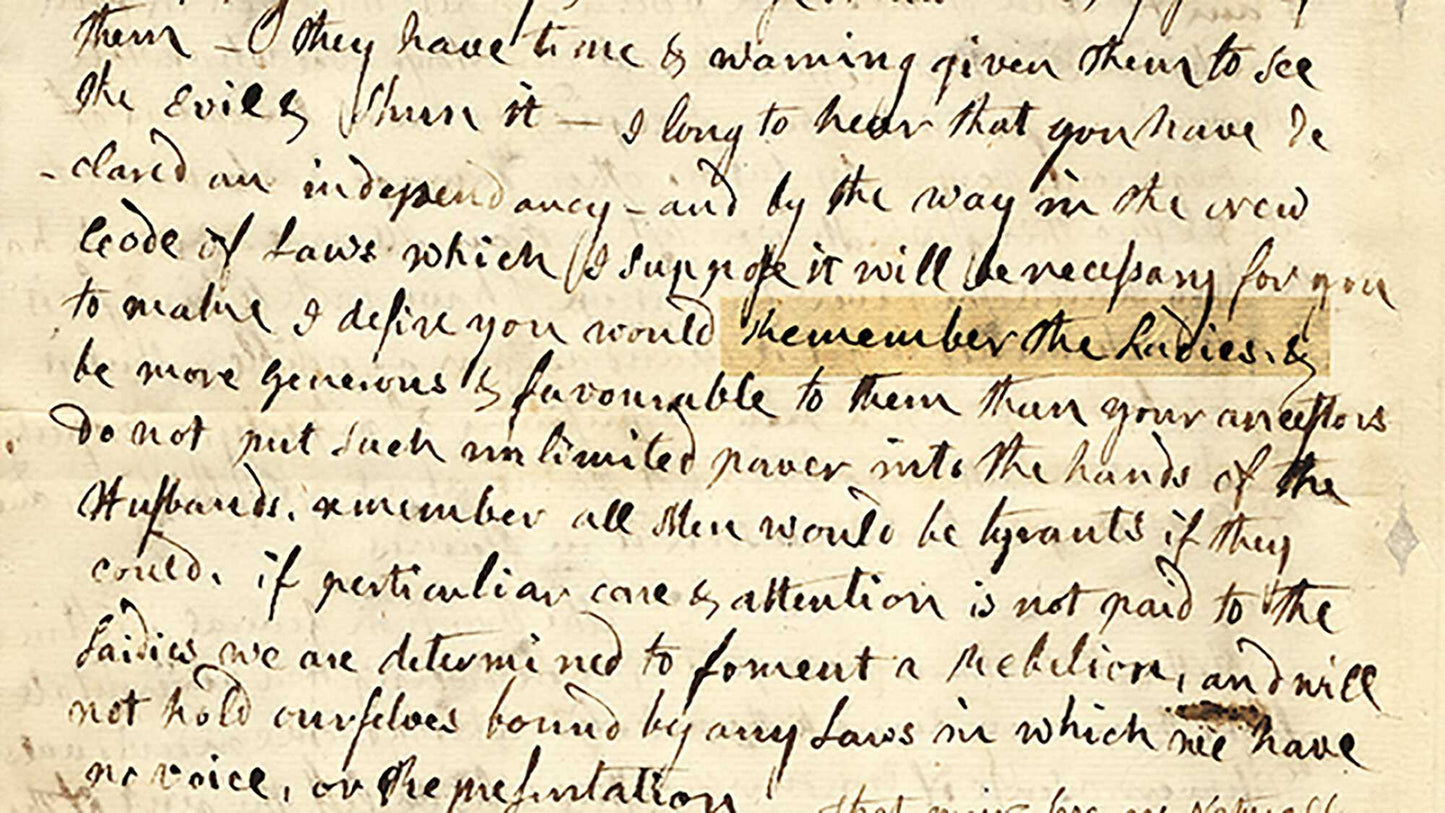 them - O they have time & warning given them to see
the Evil & shun it - I long to hear that you have de
-clared an independancy - and by the way in the new
Code of Laws which I suppose it will be necessary for you
to make I desire you would Remember the Ladies, &
be more generous & favourable to them than your ancestors
do not put such unlimited power into the hands of the
Husbands. remember all Men would be tyrants if they
could. if perticuliar care & attention is not paid to the
Laidies we are determined to foment a Rebelion, and will
not hold ourselves bound by any Laws in which we have
no voice, or Representation
That your Sex are Naturally